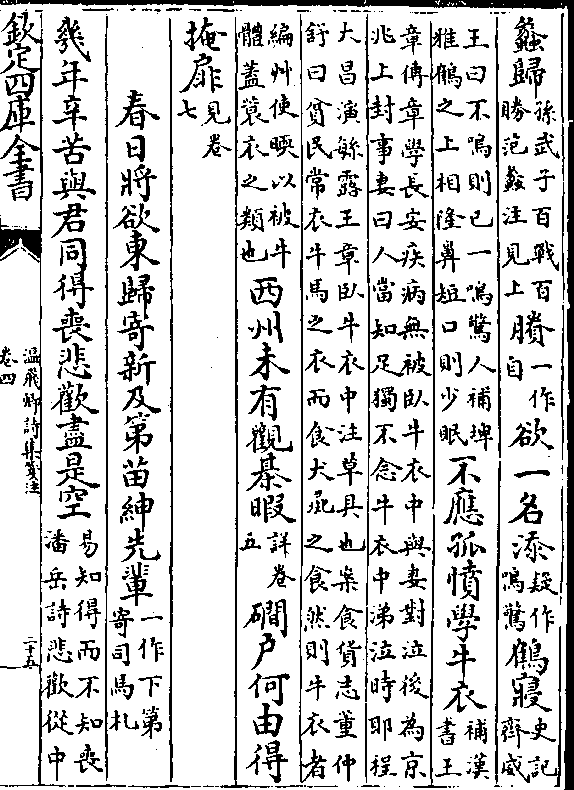 蠡歸孫武子百戰百勝范蠡注見上勝一作自欲一名添疑作鳴驚鶴寢史記齊威
王曰不鳴則已一鳴驚人補埤雅鶴之上相隆鼻短口則少眠不應孤憤學牛衣補漢書王
章傳章學長安疾病無被臥牛衣中與妻對泣後為京兆上封事妻曰人當知足獨不念牛衣中涕泣時耶程
大昌演緐露王章臥牛衣中注草具也案食貨志董仲舒曰貧民常衣牛馬之衣而食犬彘之食然則牛衣者
編艸使暖以被牛體蓋蓑衣之類也西州未有觀棊暇詳卷五磵户何由得
掩扉見卷七
春日將欲東歸寄新及第苗紳先輩一作下第寄司馬札
幾年辛苦與君同得喪悲歡盡是空易知得而不知喪潘岳詩悲歡從中
欽定四庫全書
温飛卿詩集箋注
卷四
二十五